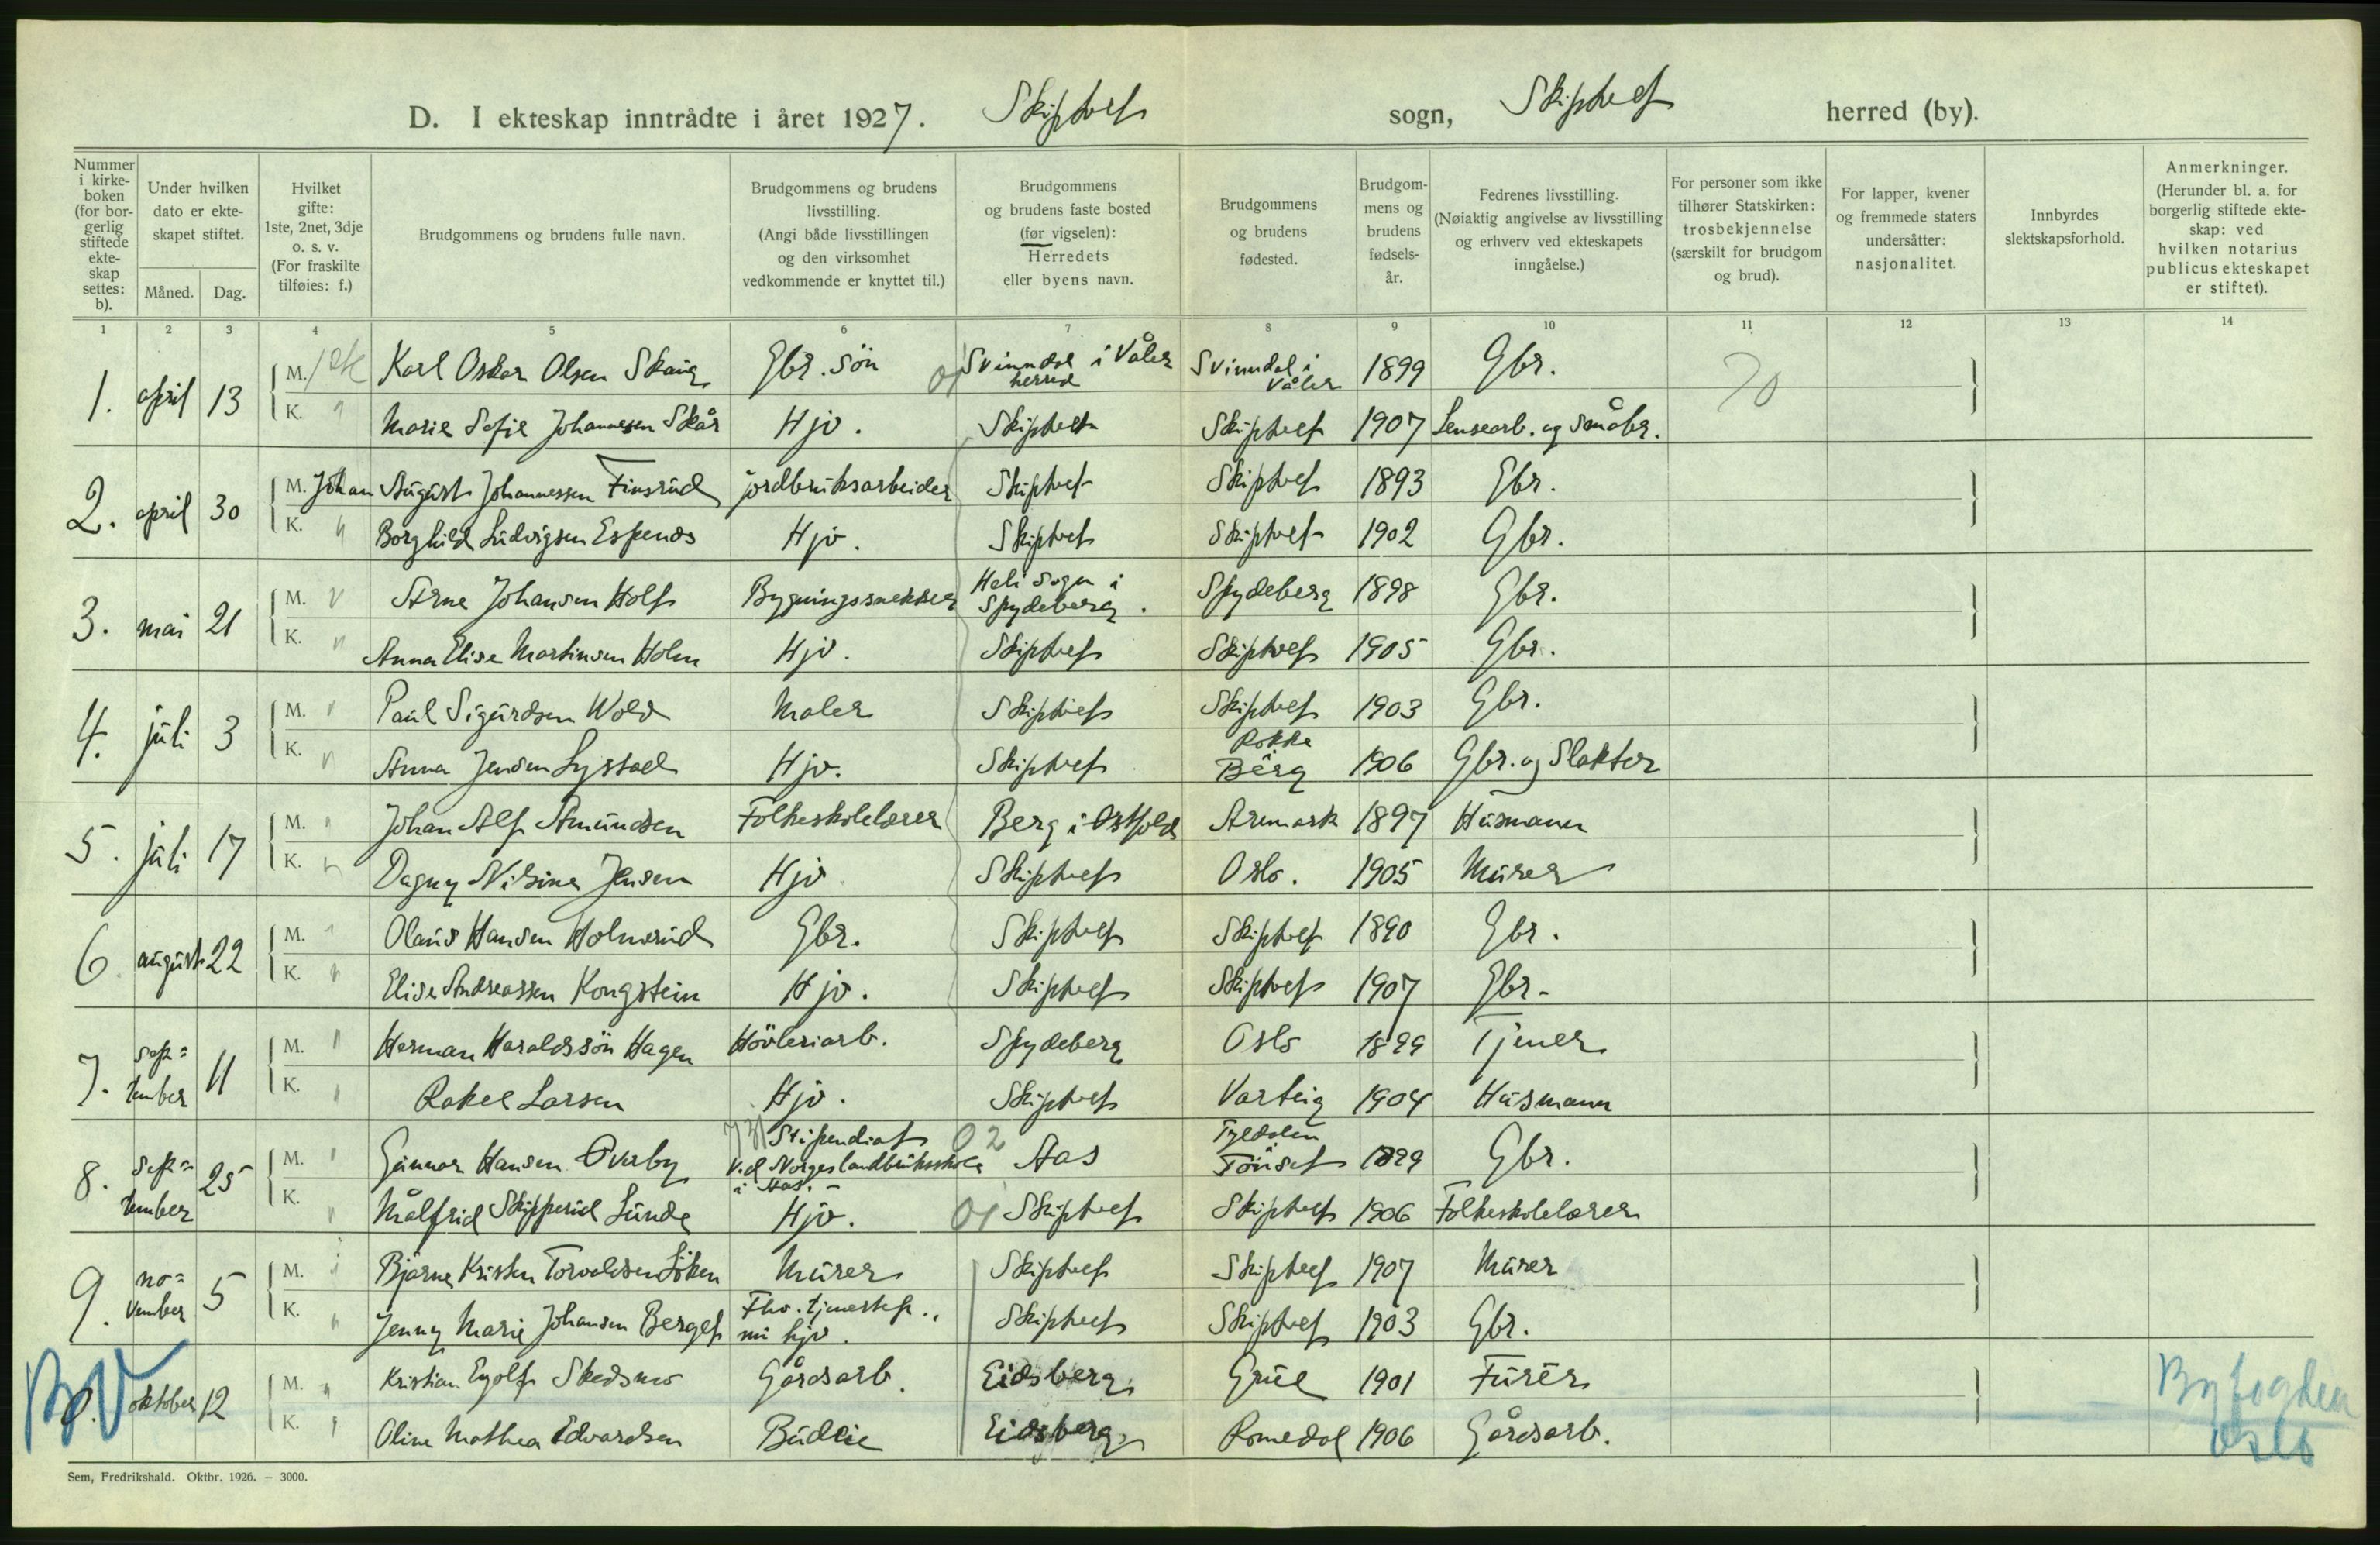 D. I ekteskap inntrådte i året 1927. Skiptvet sogn, Skiptvet herred (by).
Nummer i kirke-boken (for bor-gerlig stiftede ekte-skap settes: b).
Under hvilken dato er ekte-skapet stiftet.
Måned. Dag.
Hvilket gifte: 1ste, 2net, 3dje o. s. v. (For fraskilte tilføies: f.)
Brudgommens og brudens fulle navn.
Brudgommens og brudens livsstilling. (Angi både livsstillingen og den virksomhet vedkommende er knyttet til.)
Brudgommens og brudens faste bosted (før vigselen): Herredets eller byens navn.
Brudgommens og brudens fødested.
Brudgom-mens og brudens fødsels-år.
Fedrenes livsstilling. (Nøiaktig angivelse av livsstilling og erhverv ved ekteskapets inngåelse.)
For personer som ikke tilhører Statskirken: trosbekjennelse (særskilt for brudgom og brud).
For lapper, kvener og fremmede staters undersåtter: nasjonalitet.
Innbyrdes slektskapsforhold.
Anmerkninger. (Herunder bl. a. for borgerlig stiftede ekte-skap: ved hvilken notarius publicus ekteskapet er stiftet).
1 2 3 4 5 6 7 8 9 10 11 12 13 14
1. april 13 M. 1ste Karl Oskar Olsen Skaug Gbr. sön 01 Svinndal i Våler herred Svinndal i Våler 1899 Gbr. 70
K. " Marie Sofie Johannesen Skår Hjv. Skiptvet Skiptvet 1907 Lensearb. og småbr.
2. april 30 M. Johan August Johannessen Finsrud jordbruksarbeider Skiptvet Skiptvet 1893 Gbr.
K. " Borghild Ludvigsen Espenes Hjv. Skiptvet Skiptvet 1902 Gbr.
3. mai 21 M. " Arne Johansen Holt Bygningssnekker Heli sogn i Spydeberg. Spydeberg 1898 Gbr.
K. " Anna Elise Martinsen Holm Hjv. Skiptvet Skiptvet 1905 Gbr.
4. juli 3 M. " Paul Sigurdsen Wold Maler Skiptvet Skiptvet 1903 Gbr.
K. " Anna Jensen Lystad Hjv. Skiptvet Rokke Berg 1906 Gbr. og Slakter
5. juli 17 M. " Johan Alf Amundsen Folkeskolelærer Berg i Østfold Aremark 1897 Husmann
K. " Dagny Nilsine Jensen Hjv Skiptvet Oslo. 1905 Murer
6. august 22 M. " Olaus Hansen Holmsrud Gbr. Skiptvet Skiptvet 1890 Gbr.
K. " Elise Andreassen Kongstein Hjv. Skiptvet Skiptvet 1907 Gbr.
7. sep=tember 11 M. " Herman Haraldssön Hagen Hövleriarb. Spydeberg Oslo 1899 Tjener
K. " Rakel Larsen Hjv. Skiptvet Varteig 1904 Husmann
8. sep=tember 25 M. " Gunnar Hansen Øverby Stipendiat ved Norges landbrukshskole i Aas. 02 Aas Tyldalen Tönset 1899 Gbr.
K. " Målfrid Skipperud Lunde Hjv. 01 Skiptvet Skiptvet 1906 Folkeskolelærer
9. no=vember 5 M. " Bjarne Kristen Torvaldsen Löken Murer Skiptvet Skiptvet 1907 Murer
K. " Jenny Marie Johansen Berget Fhv. tjenestep., nu hjv. Skiptvet Skiptvet 1903 Gbr.
BV oktober 12 M. " Kristian Eyolf Skedsmo Gårdsarb. Eidsberg Grue 1901 Furer Byfogden
K. " Oline Mathea Edvardsen Budeie Eidsberg Romedal 1906 Gårdsarb. Oslo
Sem, Fredrikshald. Oktbr. 1926. – 3000.